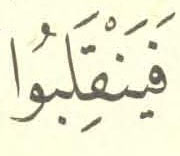 فَيَنْقَلِبُوا